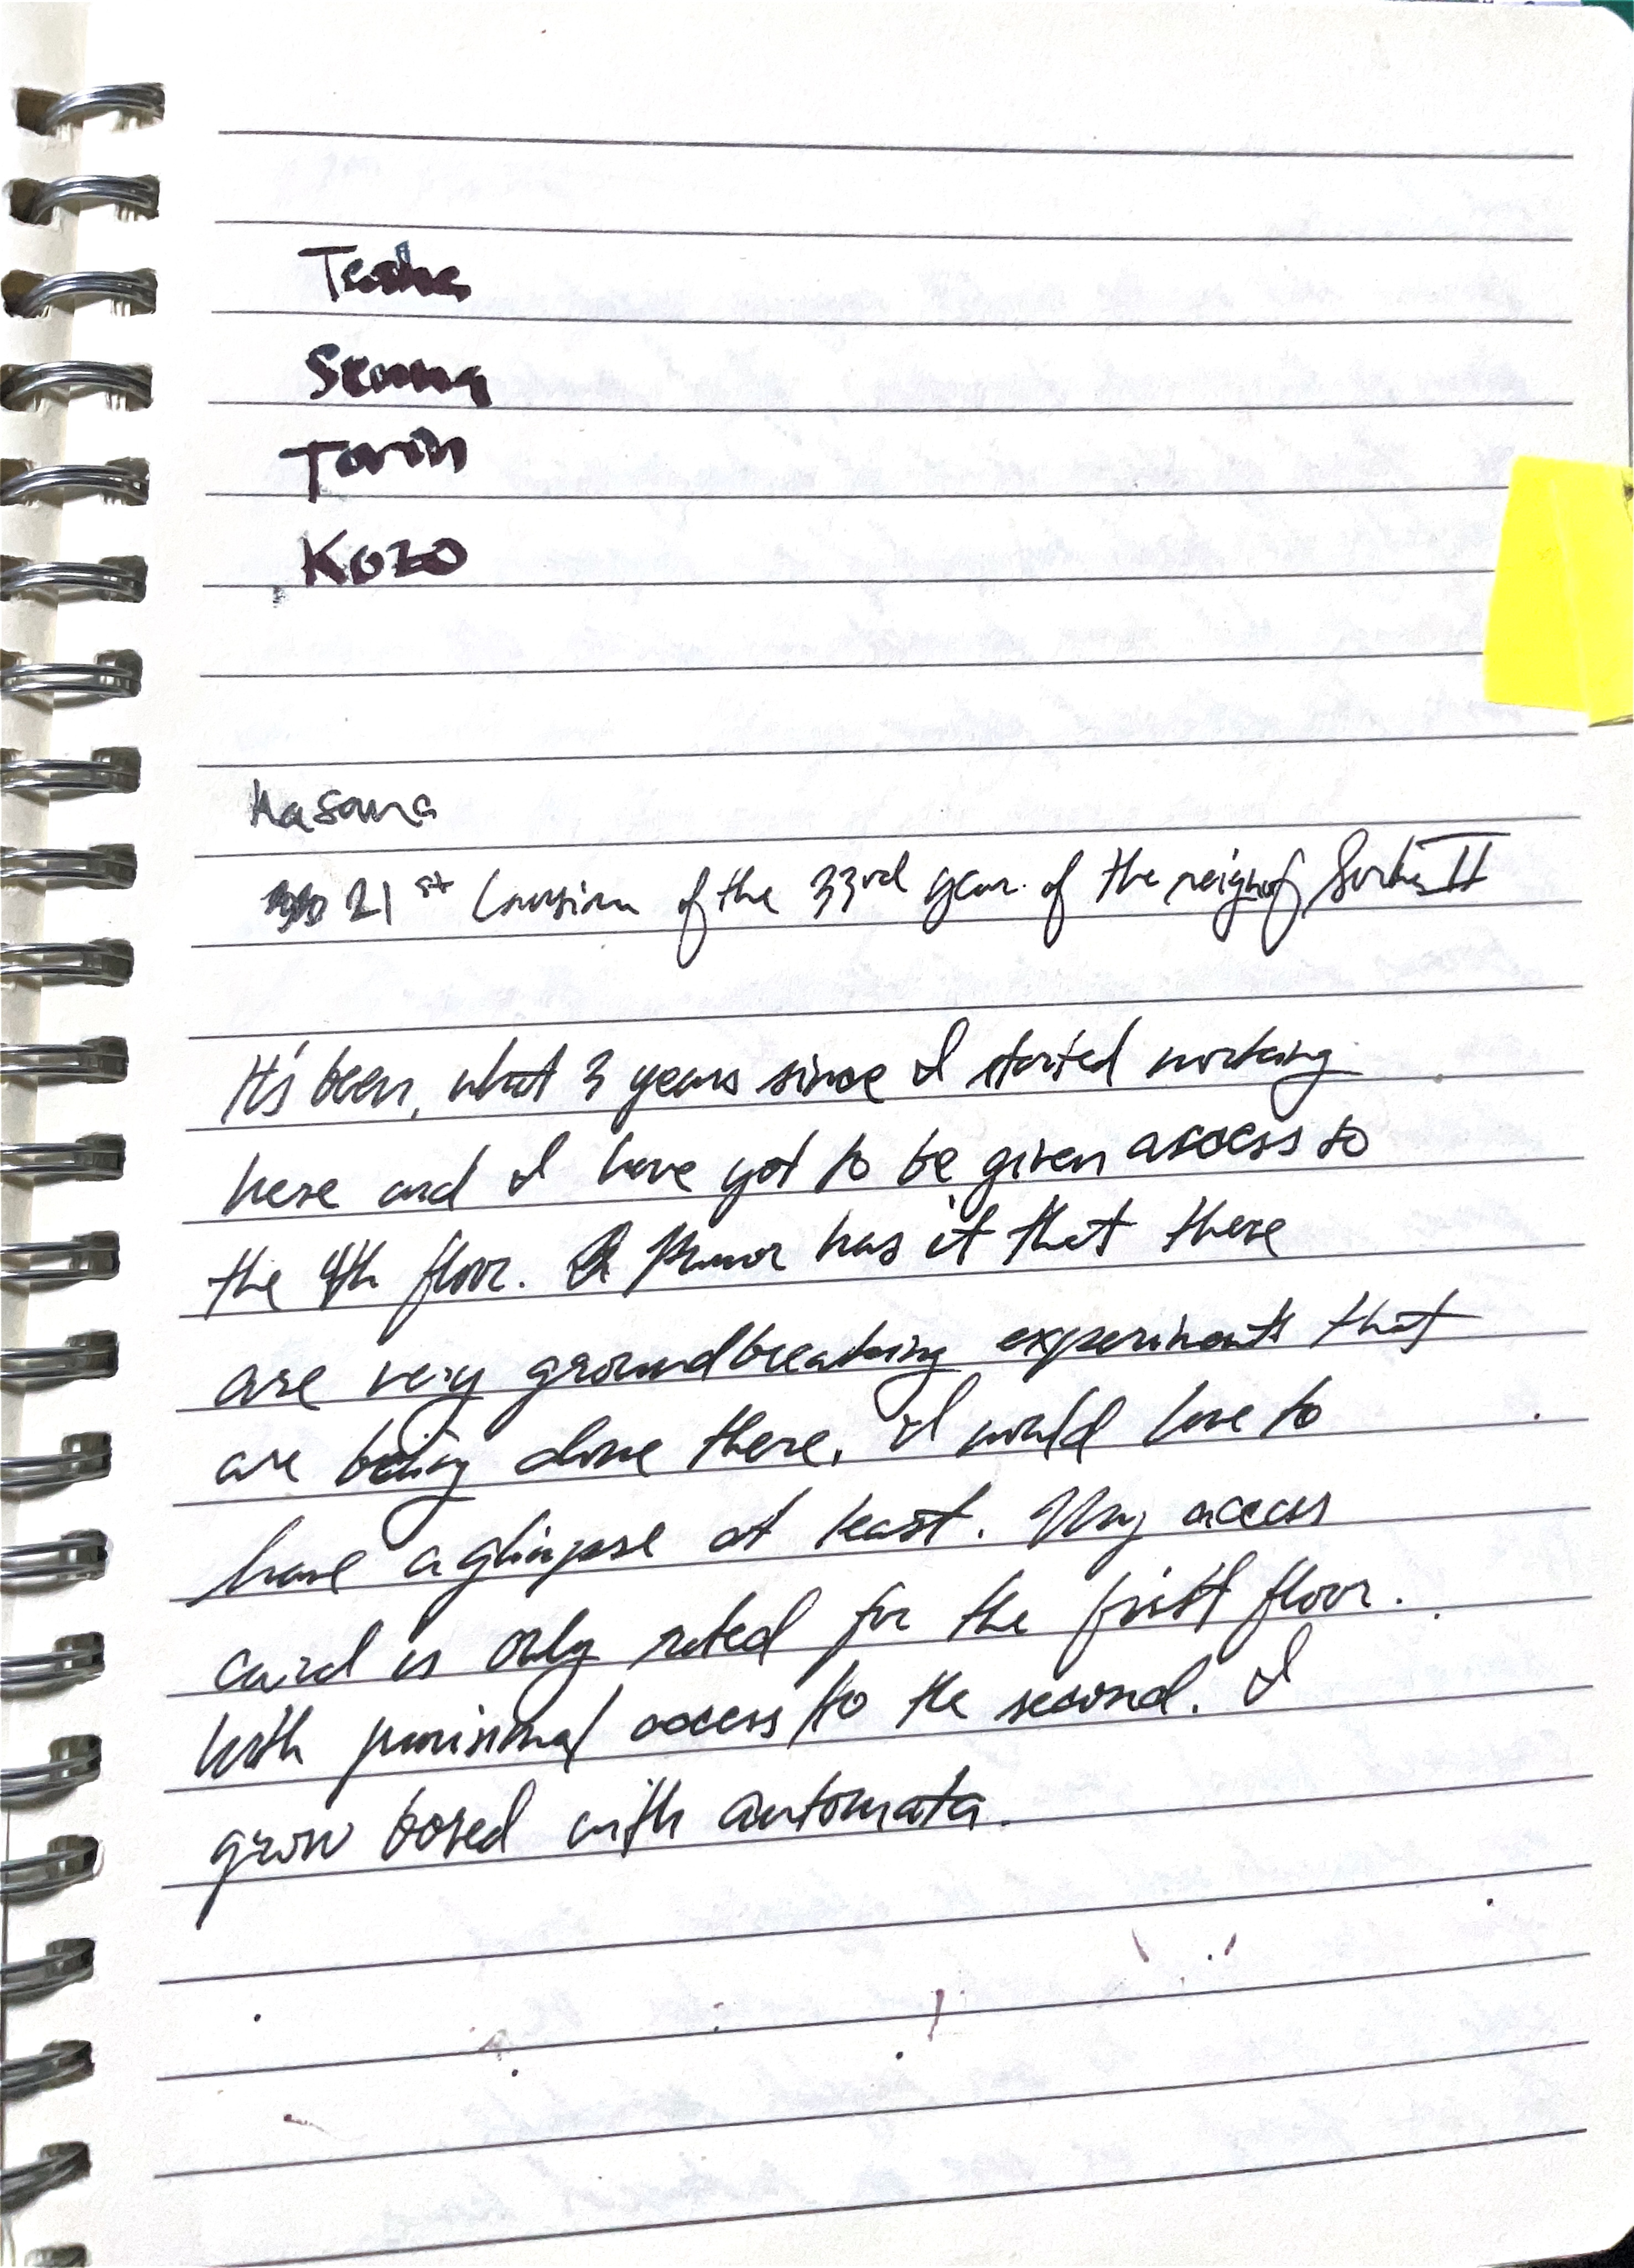 Senna
Torin
Kozo
Kasana
21st of the 33rd year of the reign of II
It's been, what 3 years since I started working
here and I have yet to be given access to
the 4th floor. Rumor has it that there
are very groundbreaking experiments that
are being done there. I would love to
have a glimpse at least. My access
card is only rated for the first floor.
With provisional access to the second. I
grow bored with automata.